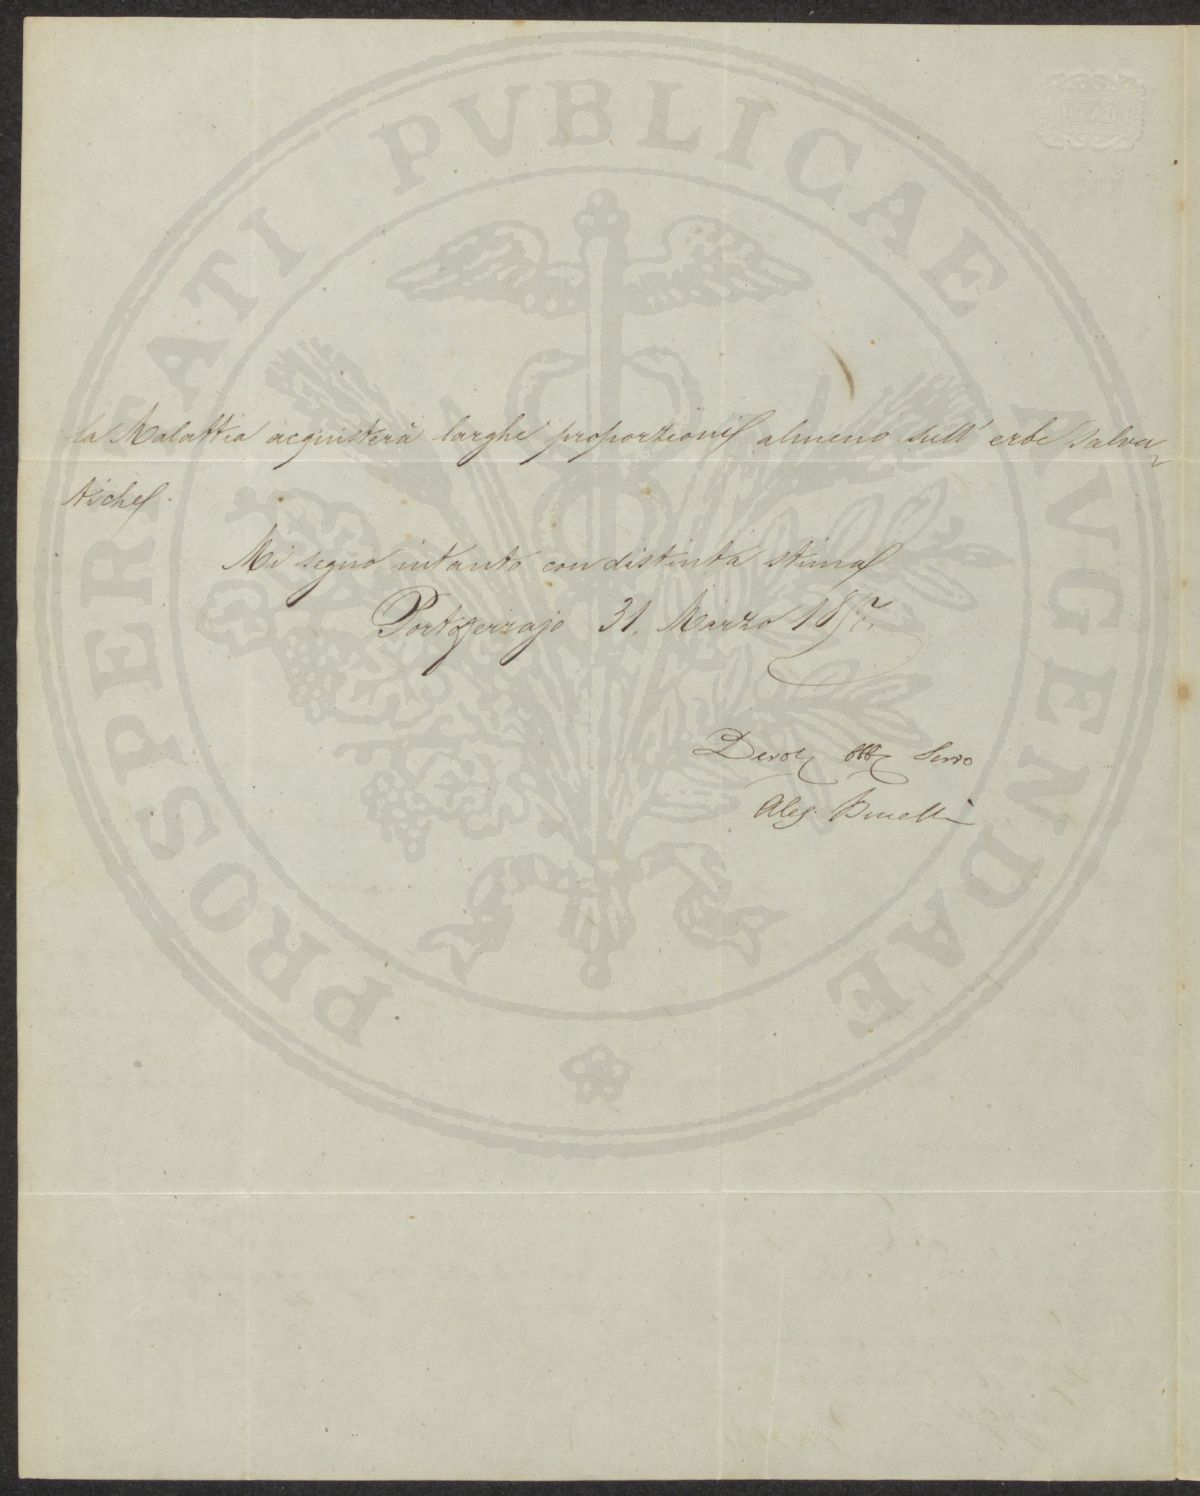 PROSPERITATI PVBLICAE AVGENDAE
la Malattia acquisterà larghe proporzioni almeno sull' erbe salva-
tiche.
Mi segno intanto con distinta stima
31. Marzo
Devot. Obb. Servo
Ales.